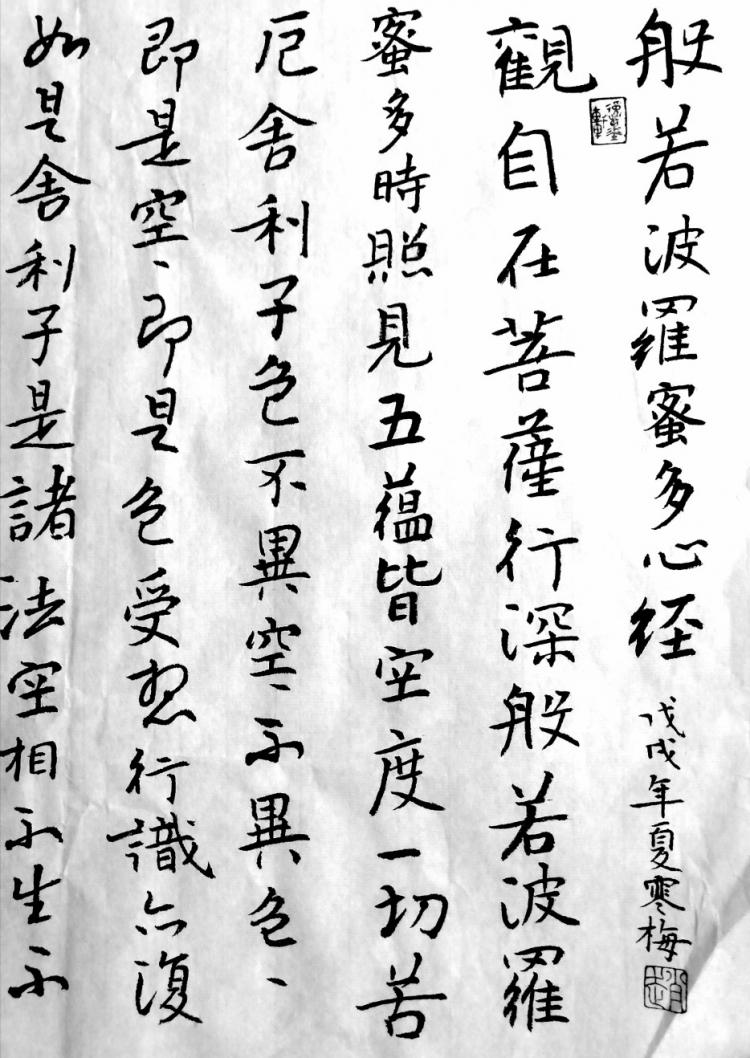 般若波羅蜜多心経 戊戌年夏寒梅
觀自在菩薩行深般若波羅
蜜多時照見五蘊皆空度一切苦
厄舍利子色不異空、不異色、
即是空、即是色受想行識亦復
如是舍利子是諸法空相不生不